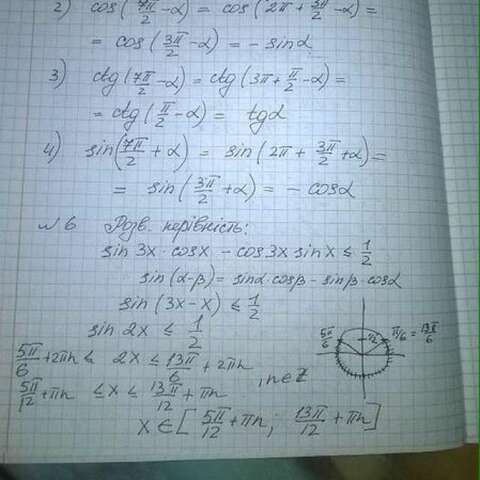 2) cos(7π/2 - α) = cos(2π + 3π/2 - α) =
= cos(3π/2 - α) = - sinα
3) ctg(7π/2 - α) = ctg(3π + π/2 - α) =
= ctg(π/2 - α) = tgα
4) sin(7π/2 + α) = sin(2π + 3π/2 + α) =
= sin(3π/2 + α) = - cosα
№6 Розв. нерівність:
sin 3x · cosx - cos3x sinx ≤ 1/2
sin(α-β) = sinα·cosβ - sinβ·cosα
sin(3x - x) ≤ 1/2
sin 2x ≤ 1/2
5π/6 1/2 π/6 = 13π/6
5π/6 + 2πn ≤ 2x ≤ 13π/6 + 2πn
, n∈Z
5π/12 + πn ≤ x ≤ 13π/12 + πn
x ∈ [5π/12 + πn; 13π/12 + πn]